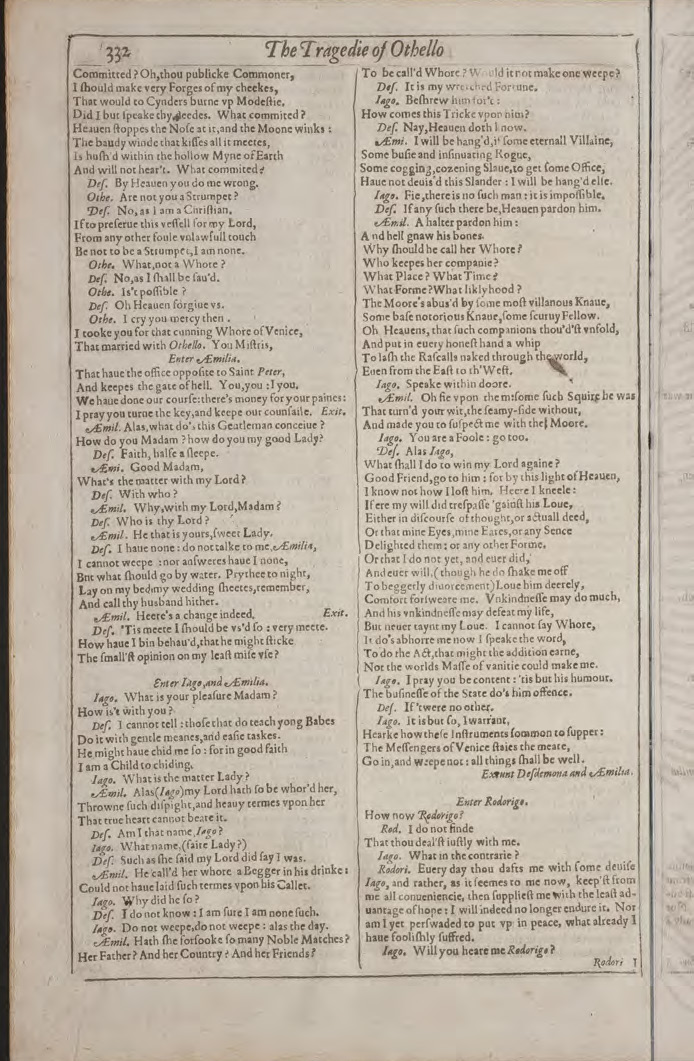 332
The Tragedie of Othello
Committed? Oh, thou publicke Commoner,
I should make very Forges of my cheekes,
That would to Cynders burne vp Modestie,
Did I but speake thy deedes. What commited?
Heauen stoppes the Nose at it, and the Moone winks:
The baudy winde that kisses all it meetes,
Is hush'd within the hollow Myne of Earth
And will not hear't. What commited?
Des. By Heauen you do me wrong.
Othe. Are not you a Strumpet?
Des. No, as I am a Christian.
If to preserue this vessell for my Lord,
From any other foule vnlawfull touch
Be not to be a Strumpet, I am none.
Othe. What, not a Whore?
Des. No, as I shall be sau'd.
Othe. Is't possible?
Des. Oh Heauen forgiue vs.
Othe. I cry you mercy then.
I tooke you for that cunning Whore of Venice,
That married with Othello. You Mistris,
Enter Æmilia.
That haue the office opposite to Saint Peter,
And keepes the gate of hell. You, you: I you.
We haue done our course: there's money for your paines:
I pray you turne the key, and keepe our counsaile. Exit.
Æmil. Alas, what do's this Gentleman conceiue?
How do you Madam? how do you my good Lady?
Des. Faith, halfe a sleepe.
Æmi. Good Madam,
What's the matter with my Lord?
Des. With who?
Æmil. Why, with my Lord, Madam?
Des. Who is thy Lord?
Æmil. He that is yours, sweet Lady.
Des. I haue none: do not talke to me, Æmilia,
I cannot weepe: nor answeres haue I none,
But what should go by water. Prythee to night,
Lay on my bed my wedding sheetes, remember,
And call thy husband hither.
Æmil. Heere's a change indeed. Exit.
Des. 'Tis meete I should be vs'd so: very meete.
How haue I bin behau'd, that he might sticke
The small'st opinion on my least misvse?
Enter Iago, and Æmilia.
Iago. What is your pleasure Madam?
How is't with you?
Des. I cannot tell: those that do teach yong Babes
Do it with gentle meanes, and easie taskes.
He might haue chid me so: for in good faith
I am a Child to chiding.
Iago. What is the matter Lady?
Æmil. Alas (Iago) my Lord hath so bewhor'd her,
Throwne such dispight, and heauy termes vpon her
That true heart cannot beare it.
Des. Am I that name, Iago?
Iago. What name, (faire Lady?)
Des. Such as she said my Lord did say I was.
Æmil. He call'd her whore: a Begger in his drinke:
Could not haue laid such termes vpon his Callet.
Iago. Why did he so?
Des. I do not know: I am sure I am none such.
Iago. Do not weepe, do not weepe: alas the day.
Æmil. Hath she forsooke so many Noble Matches?
Her Father? And her Country? And her Friends?
To be call'd Whore? Would it not make one weepe?
Des. It is my wretched Fortune.
Iago. Beshrew him for't:
How comes this Tricke vpon him?
Des. Nay, Heauen doth know.
Æmi. I will be hang'd, if some eternall Villaine,
Some busie and insinuating Rogue,
Some cogging, cozening Slaue, to get some Office,
Haue not deuis'd this Slander: I will be hang'd else.
Iago. Fie, there is no such man: it is impossible.
Des. If any such there be, Heauen pardon him.
Æmil. A halter pardon him:
And hell gnaw his bones.
Why should he call her Whore?
Who keepes her companie?
What Place? What Time?
What Forme? What liklyhood?
The Moore's abus'd by some most villanous Knaue,
Some base notorious Knaue, some scuruy Fellow.
Oh Heauens, that such companions thou'd'st vnfold,
And put in euery honest hand a whip
To lash the Rascalls naked through the world,
Euen from the East to th'West.
Iago. Speake within doore.
Æmil. Oh fie vpon them: some such Squire he was
That turn'd your wit, the seamy-side without,
And made you to suspect me with the Moore.
Iago. You are a Foole: go too.
Des. Alas Iago,
What shall I do to win my Lord againe?
Good Friend, go to him: for by this light of Heauen,
I know not how I lost him. Heere I kneele:
If ere my will did trespasse 'gainst his Loue,
Either in discourse of thought, or actuall deed,
Or that mine Eyes, mine Eares, or any Sence
Delighted them: or any other Forme.
Or that I do not yet, and euer did,
And euer will, (though he do shake me off
To beggerly diuorcement) Loue him deerely,
Comfort forsweare me. Vnkindnesse may do much,
And his vnkindnesse may defeat my life,
But neuer taynt my Loue. I cannot say Whore,
It do's abhorre me now I speake the word,
To do the Act, that might the addition earne,
Not the worlds Masse of vanitie could make me.
Iago. I pray you be content: 'tis but his humour.
The businesse of the State do's him offence.
Des. If 'twere no other.
Iago. It is but so, I warrant,
Hearke how these Instruments sommon to supper:
The Messengers of Venice staies the meate,
Go in, and weepe not: all things shall be well.
Exeunt Desdemona and Æmilia.
Enter Rodorigo.
How now Rodorigo?
Rod. I do not finde
That thou deal'st iustly with me.
Iago. What in the contrarie?
Rodori. Euery day thou dafts me with some deuise
Iago, and rather, as it seemes to me now, keep'st from
me all conueniencie, then suppliest me with the least ad-
uantage of hope: I will indeed no longer endure it. Nor
am I yet perswaded to put vp in peace, what already I
haue foolishly suffred.
Iago. Will you heare me Rodorigo?
Rodori I